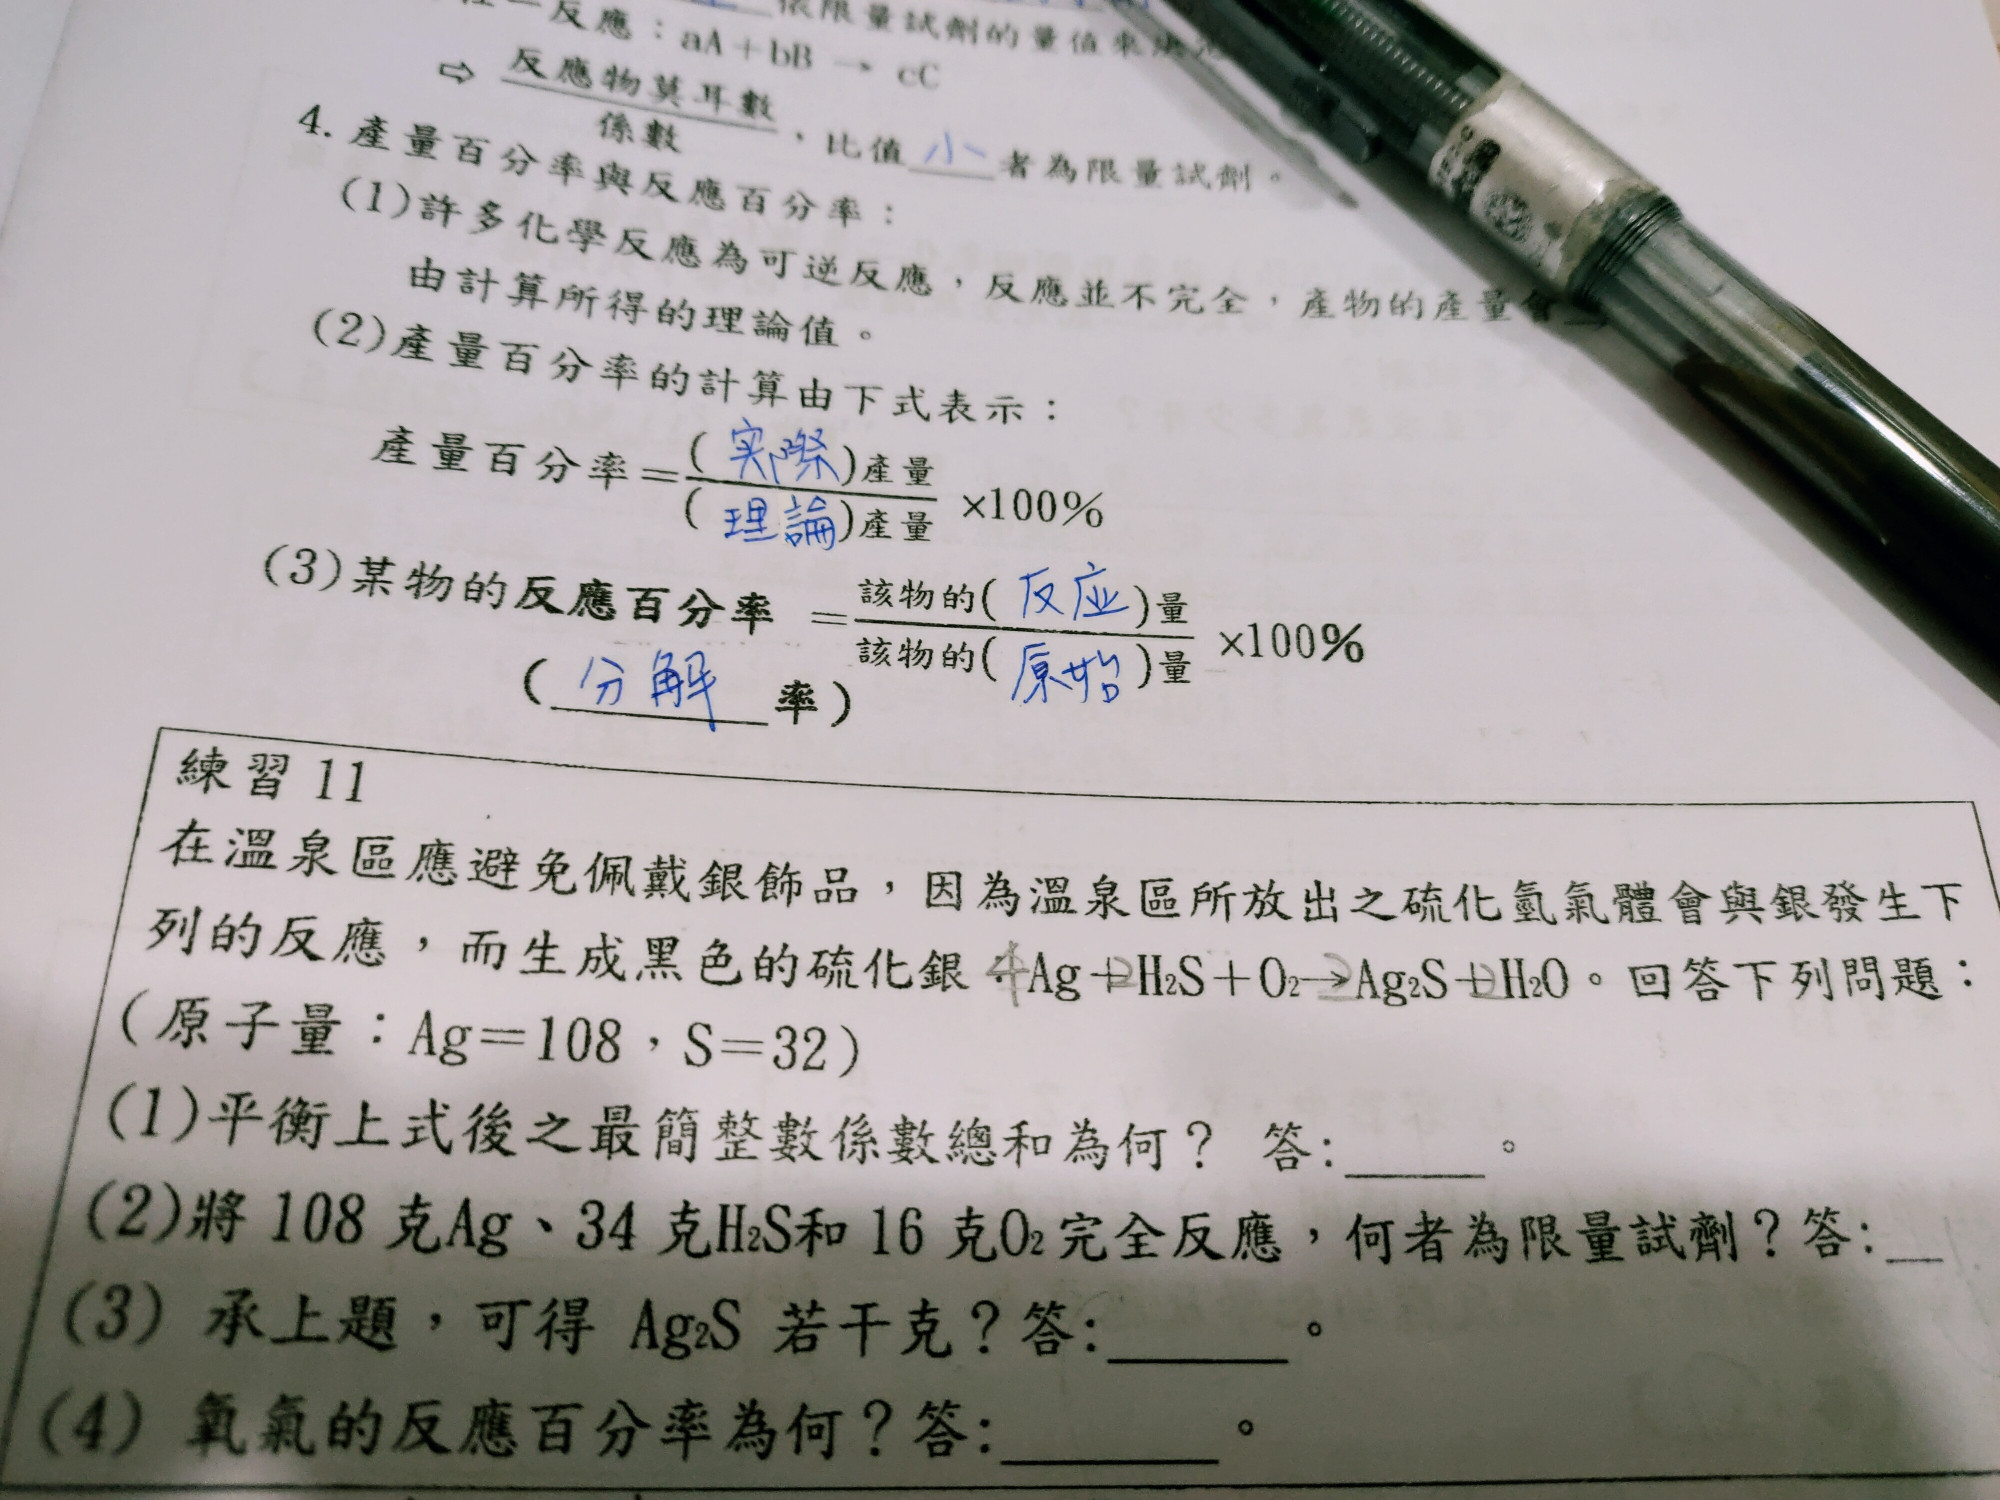 依限量試劑的量值來決定
一反應：aA＋bB → cC
⇨ 反應物莫耳數
係數 ，比值 小 者為限量試劑。
4. 產量百分率與反應百分率：
(1)許多化學反應為可逆反應，反應並不完全，產物的產量會
由計算所得的理論值。
(2)產量百分率的計算由下式表示：
產量百分率＝(実際)產量
(理論)產量 ×100%
(3)某物的反應百分率 ＝該物的(反应)量
該物的(原始)量 ×100%
(分解 率)
練習 11
在溫泉區應避免佩戴銀飾品，因為溫泉區所放出之硫化氫氣體會與銀發生下
列的反應，而生成黑色的硫化銀：4Ag＋2H₂S＋O₂→2Ag₂S＋2H₂O。回答下列問題：
(原子量：Ag＝108，S＝32)
(1)平衡上式後之最簡整數係數總和為何？ 答:____。
(2)將 108 克Ag、34 克H₂S和 16 克O₂完全反應，何者為限量試劑？答:__
(3) 承上題，可得 Ag₂S 若干克？答:_____。
(4) 氧氣的反應百分率為何？答:______。